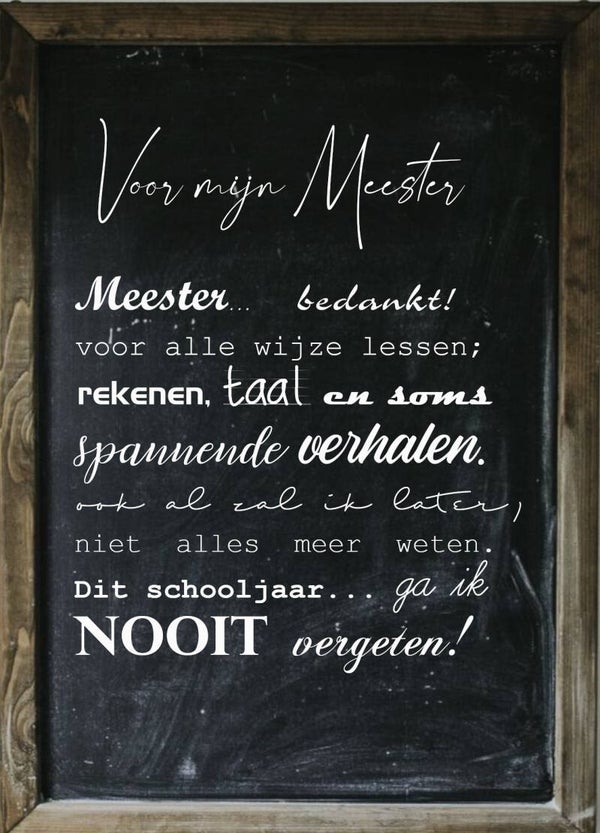 Voor mijn Meester
Meester... bedankt!
voor alle wijze lessen;
rekenen, taal en soms
spannende verhalen.
ook al zal ik later,
niet alles meer weten.
Dit schooljaar... ga ik
NOOIT vergeten!